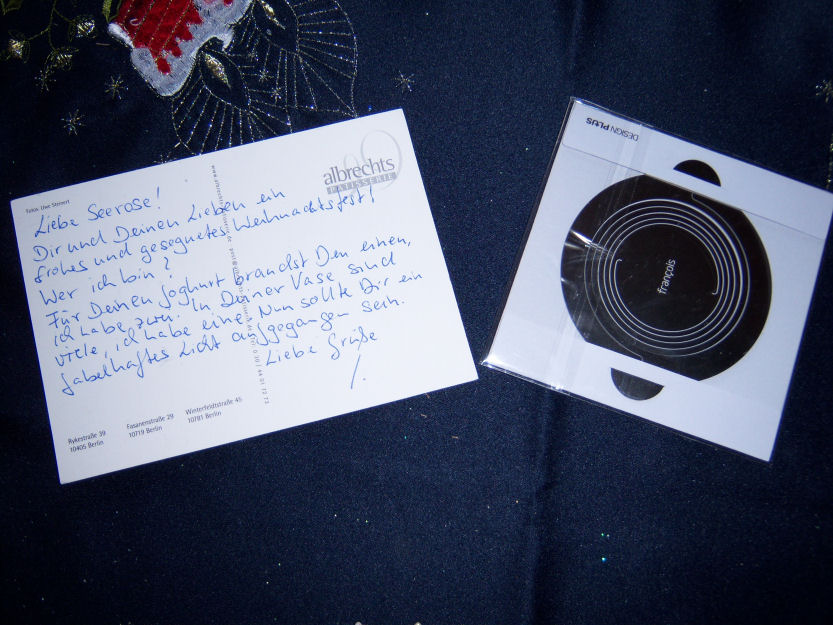 Fotos: Uwe Steinert
albrechts
PATISSERIE
Liebe Seerose!
Dir und Deinen Lieben ein
frohes und gesegnetes Weihnachtsfest!
Wer ich bin?
Für Deinen Joghurt brauchst Den einen,
ich habe zwei. In Deiner Vase sind
viele, ich habe eine. Nun sollte Dir ein
fabelhaftes Licht aufgegangen sein.
Liebe Grüße
Rykestraße 39
10405 Berlin
Fasanenstraße 29
10719 Berlin
Winterfeldtstraße 45
10781 Berlin
DESIGN PLUS
françois